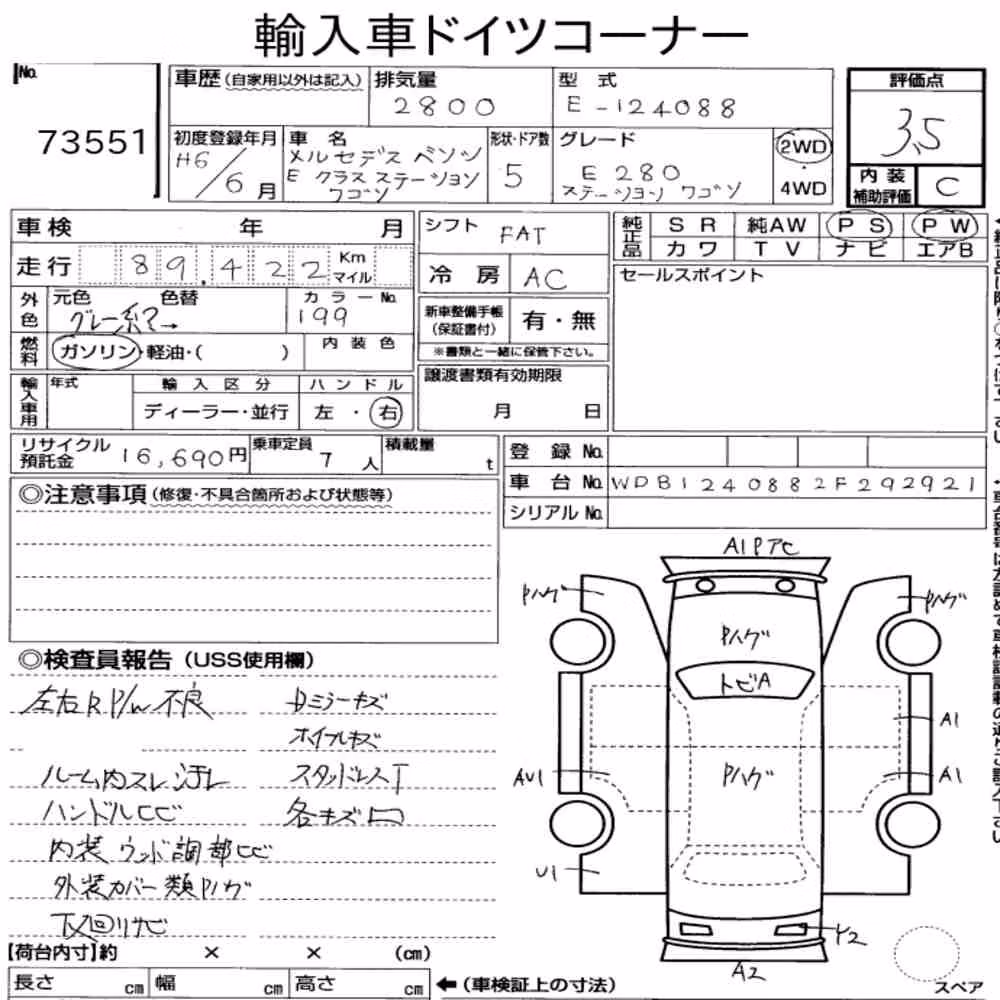 輸入車ドイツコーナー
No. 73551
車歴(自家用以外は記入)
排気量 2800
型式 E-124088
評価点 3.5
初度登録年月 H6/6月
車名 メルセデス ベンツ
E クラス ステーション
ワゴン
形状・ドア数 5
グレード E 280
ステーション ワゴン
2WD
・
4WD
内装
補助評価 C
車検 年 月
シフト FAT
純正品 SR 純AW PS PW
カワ TV ナビ エアB
走行 89,422 Km
マイル
冷房 AC
セールスポイント
外色 元色 色替 カラーNo.
グレー系2→ 199
新車整備手帳
(保証書付) 有・無
※書類と一緒に保管下さい。
燃料 ガソリン・軽油・( ) 内装色
輸入車用 年式 輸入区分 ハンドル
ディーラー・並行 左・右
譲渡書類有効期限
月 日
リサイクル
預託金 16,690円
乗車定員 7人
積載量 t
登録No.
車台No. WDB1240882F292921
シリアルNo.
◎注意事項(修復・不具合箇所および状態等)
◎検査員報告(USS使用欄)
左右R P/w 不良
Dミラーキズ
ホイールキズ
ルーム内スレ汚レ
スタッドレスT
ハンドルヒビ
各キズ凹
内装ウッド調部ヒビ
外装カバー類Pハゲ
下回リサビ
A1Pアヒ
Pハゲ
Pハゲ
Pハゲ
トビA
A1
Pハゲ
AU1
A1
U1
Y2
A2
スペア
【荷台内寸】約 × × (cm)
長さ cm 幅 cm 高さ cm ←(車検証上の寸法)